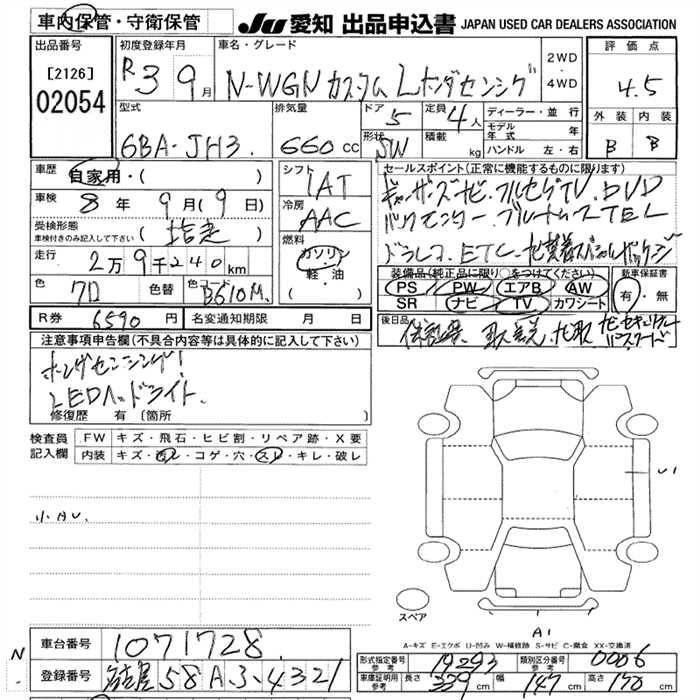 車内保管・守衛保管 JU 愛知 出品申込書 JAPAN USED CAR DEALERS ASSOCIATION
出品番号 初度登録年月 車名・グレード 2WD・4WD 評価点
[2126] R3 9月 N-WGN カスタム L ホンダセンシング 4.5
02054
型式 排気量 ドア 定員 ディーラー・並行 外装 内装
6BA-JH3 660cc 5 4人 モデル年式 年 B B
形状 SW 積載 kg ハンドル 左・右
車歴 自家用・( ) シフト IAT セールスポイント(正常に機能するものに限ります)
車検 8年 9月(9日) 冷房 AAC ギャザーズナビ・フルセグTV・DVD
受検形態 車検付きのみ記入して下さい (指定) 燃料 ガソリン・軽・油 バックモニター・ブルートゥース
走行 2万9千240km ドラレコ・ETC・
色 色替 カラーコード B610M 装備品(純正品に限り○をつけてください) 新車保証書
PS PW エアB AW 有・無
SR ナビ TV カワシート
R券 6590円 名変通知期限 月 日 後日品
注意事項申告欄(不具合内容等は具体的に記入して下さい)
ホンダセンシング!
LEDヘッドライト
修復歴 有 〔箇所 〕
検査員記入欄 FW キズ・飛石・ヒビ割・リペア跡・X要
内装 キズ・汚レ・コゲ・穴・スレ・キレ・破レ
U1
小AU.
スペア
A1
A-キズ E-エクボ U-凹み W-補修跡 S-サビ C-腐食 XX-交換済
N 車台番号 1071728
登録番号 名古屋 58A 3-4321
形式指定番号 参考 19293 類別区分番号 参考 0006
車庫証明用 参考 長さ 339cm 幅 147cm 高さ 170cm